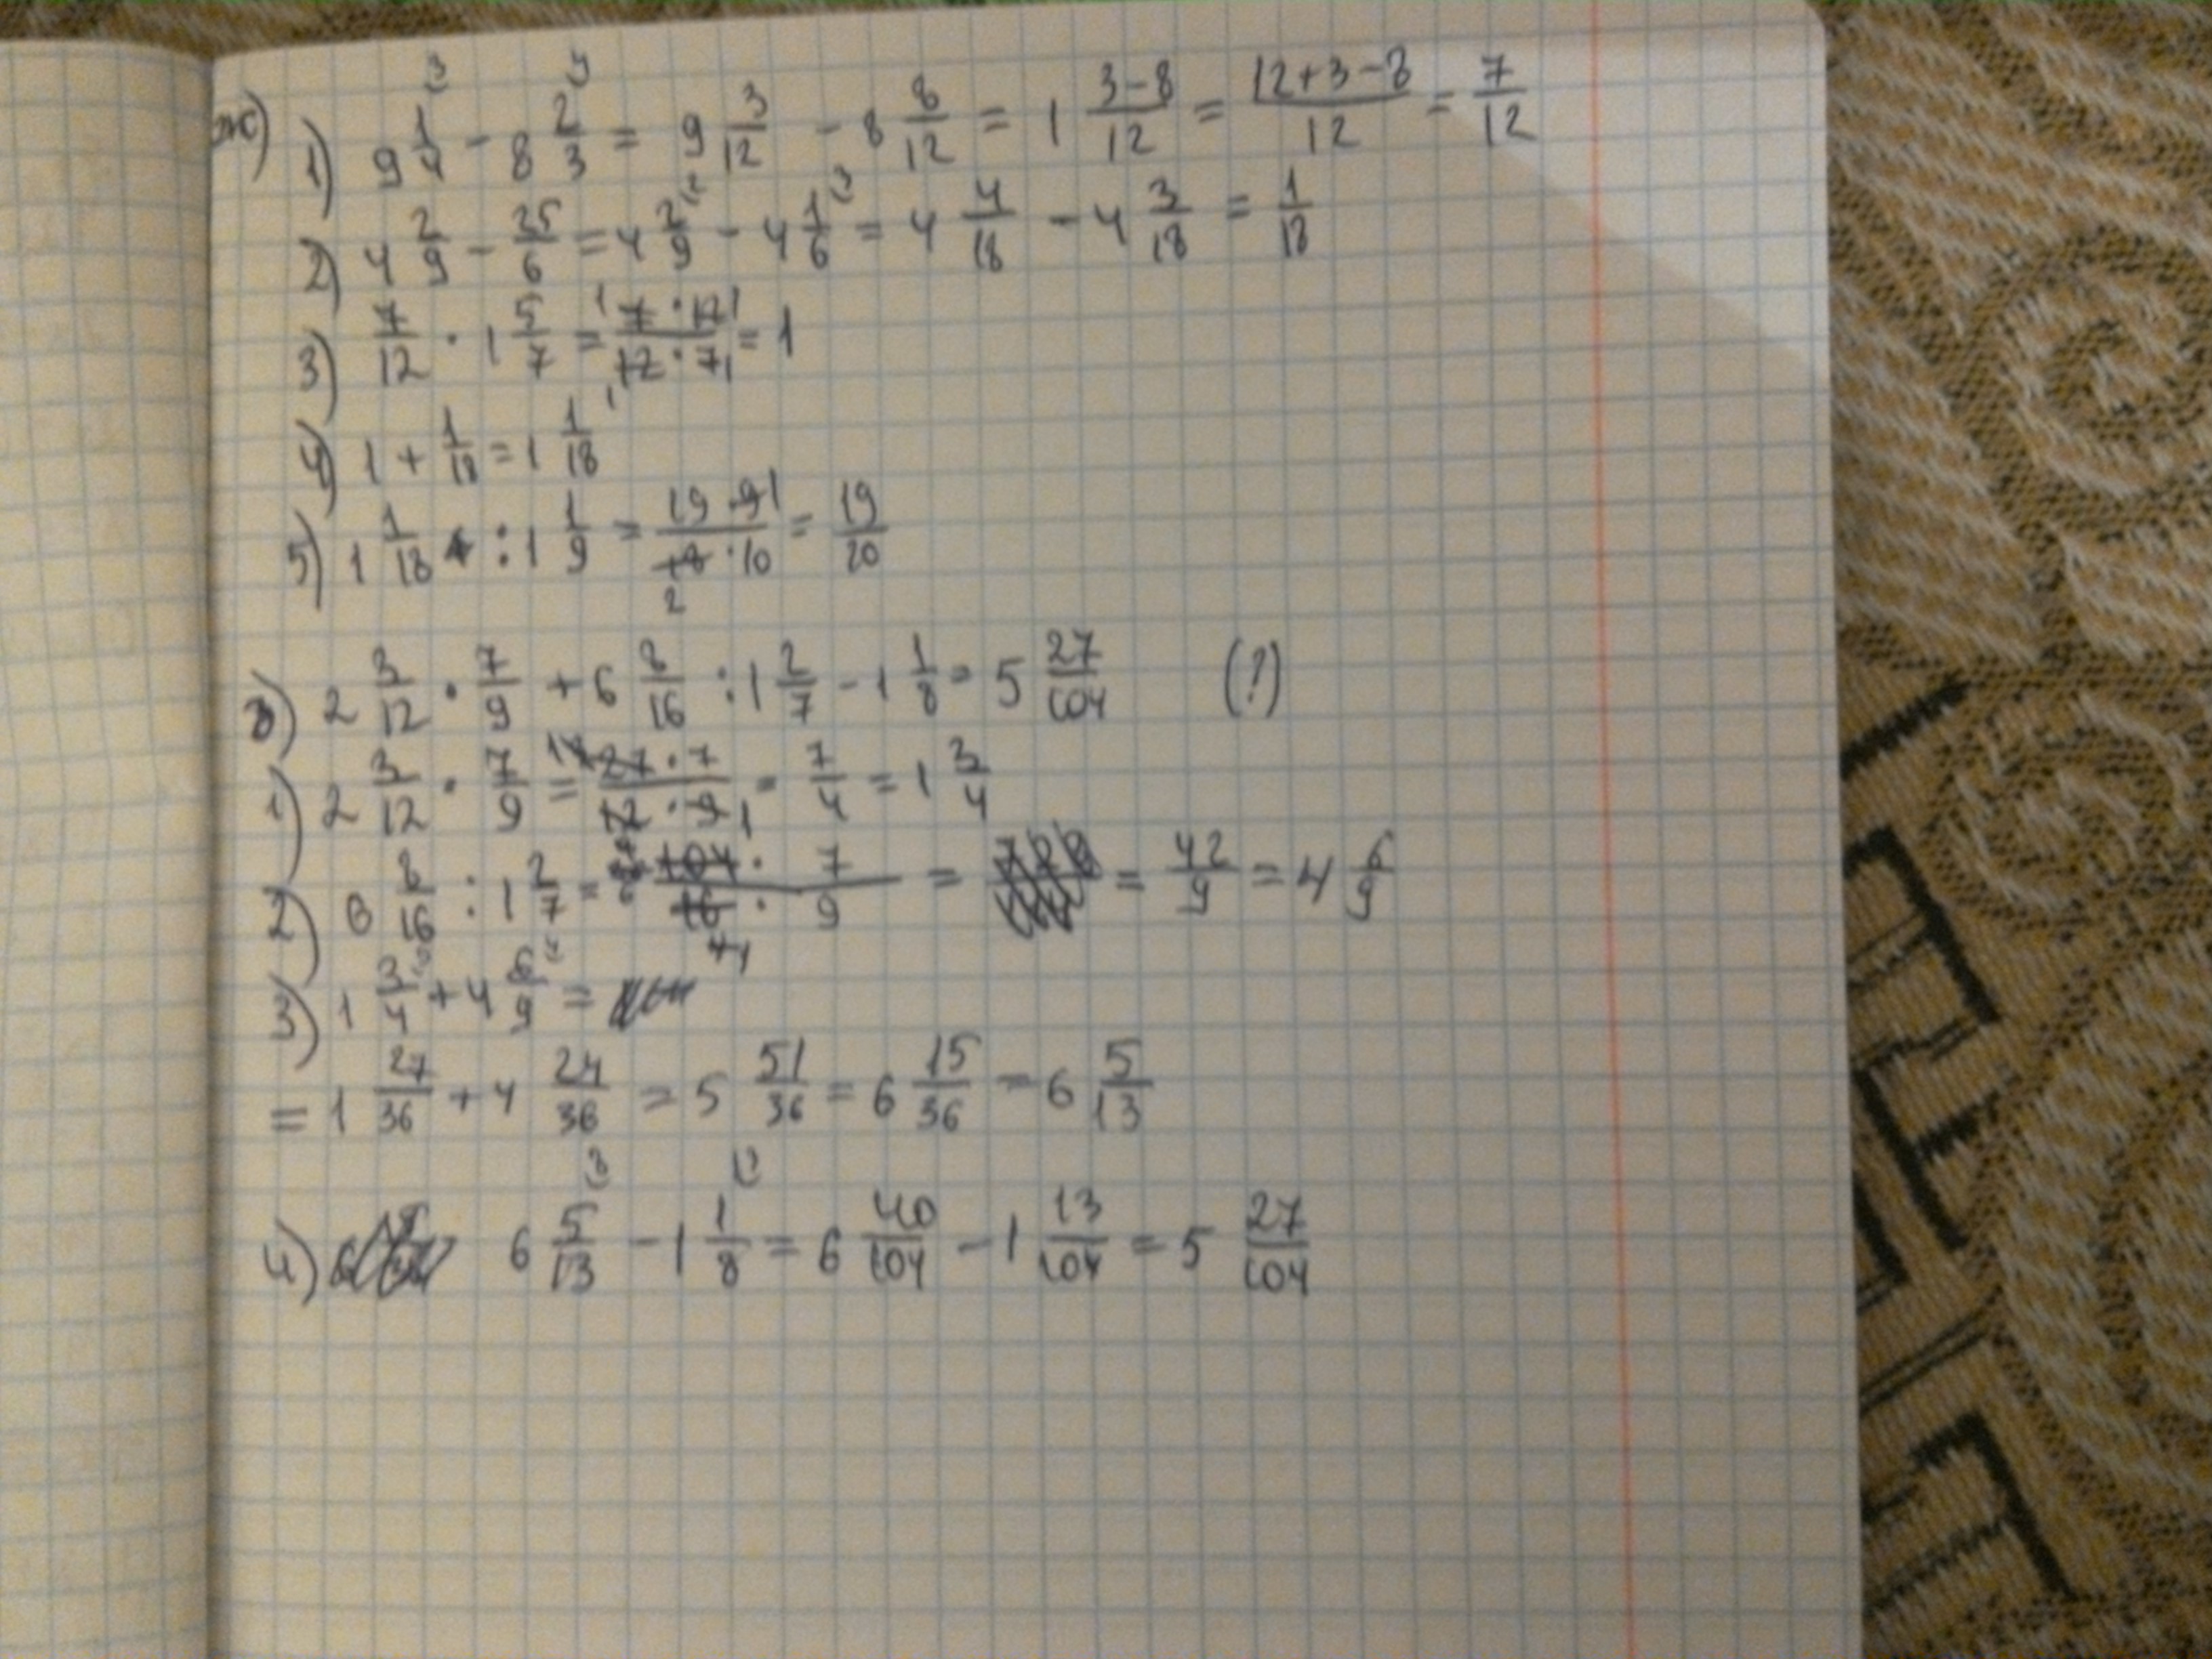 ж) 1) 9 1/4 - 8 2/3 = 9 3/12 - 8 8/12 = 1 3-8/12 = 12+3-8/12 = 7/12
2) 4 2/9 - 25/6 = 4 2/9 - 4 1/6 = 4 4/18 - 4 3/18 = 1/18
3) 7/12 · 1 5/7 = 7·12/12·7 = 1
4) 1 + 1/18 = 1 1/18
5) 1 1/18 : 1 1/9 = 19·9/18·10 = 19/20
з) 2 3/12 · 7/9 + 6 8/16 : 1 2/7 - 1 1/8 = 5 27/104 (?)
1) 2 3/12 · 7/9 = 27·7/12·9 = 7/4 = 1 3/4
2) 6 8/16 : 1 2/7 = 104·7/16·9 = = 42/9 = 4 6/9
3) 1 3/4 + 4 6/9 =
= 1 27/36 + 4 24/36 = 5 51/36 = 6 15/36 = 6 5/13
4) 6 5/13 - 1 1/8 = 6 40/104 - 1 13/104 = 5 27/104